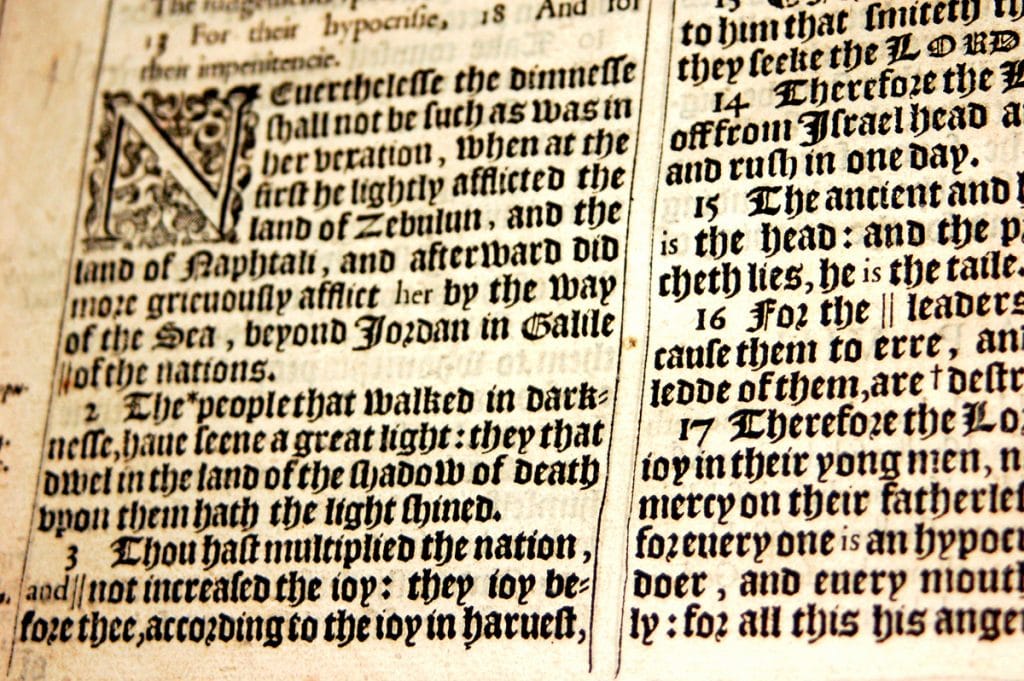 13 For their hypocriſie, 18 And for
their impenitencie.
NEuertheleſſe the dimneſſe
ſhall not be ſuch as was in
her vexation, when at the
firſt he lightly afflicted the
land of Zebulun, and the
land of Naphtali, and afterward did
more grieuouſly afflict her by the way
of the Sea, beyond Jordan in Galile
||of the nations.
2 The *people that walked in dark-
neſſe, haue ſeene a great light: they that
dwel in the land of the ſhadow of death
vpon them hath the light ſhined.
3 Thou haſt multiplied the nation,
and||not increaſed the ioy: they ioy be-
fore thee, according to the ioy in harueſt,
to him that ſmiteth
they ſeeke the LORD
14 Therefore the
off from Iſrael head
and ruſh in one day.
15 The ancient and
is the head: and the
cheth lies, he is the taile.
16 For the || leaders
cauſe them to erre,
ledde of them, are †
17 Therefore the
ioy in their yong men,
mercy on their
for euery one is an
doer, and euery
ly: for all this his